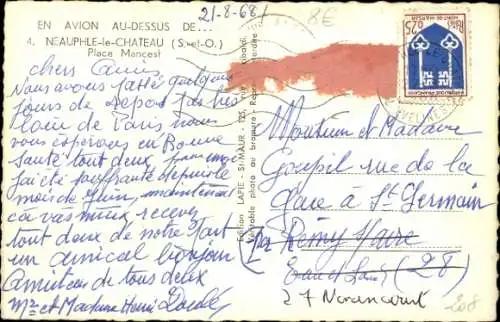 21-8-68
8€
EN AVION AU-DESSUS DE...
4. NEAUPHLE-le-CHATEAU (S.-et-O.)
Place Mancest
chers amis
Nous avons passé quelques
jours de repos pas très
loin de Paris, nous
vous espérons en Bonne
Santé tout deux, pour moi
j'ai été souffrante depuis le
mois de Juin, maintenant
ça vas mieux recevez
tout deux de notre part
un amical bonjour
Amitiés de tous deux
Mr et Madame Henri
Edition LAPIE - St-MAUR
Véritable photo au bromure
REPUBLIQUE FRANÇAISE
0,25
MONT-DE-MARSAN
YVELINES
Monsieur et Madame
Goupil rue de la
Gare à St Germain
Rémy
Eure et Loir (28)
27 Nonancourt
208